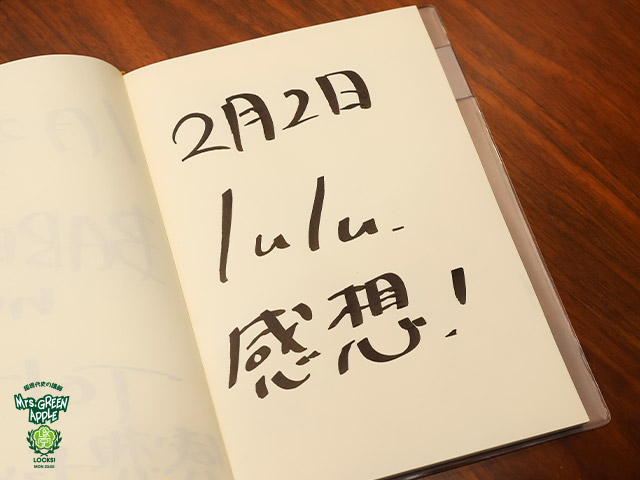 2月2日
lulu.
感想!
Mrs. GREEN
APPLE
LOCKS!